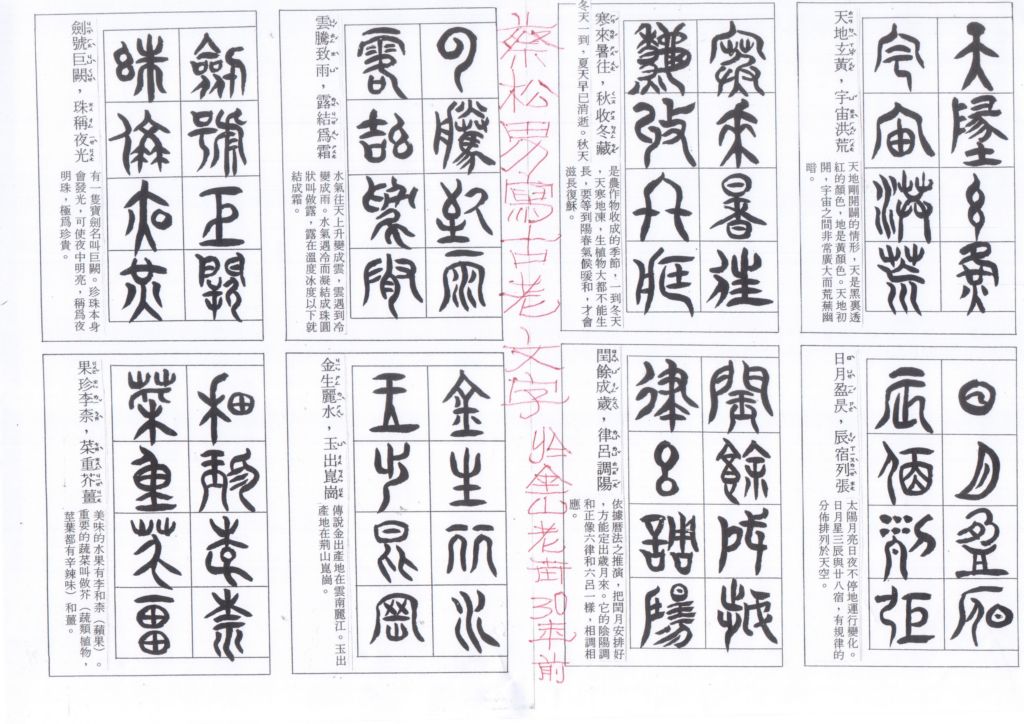 天地玄黃，宇宙洪荒
天地剛開闢的情形，天是黑裏透
紅的顏色，地是黃顏色。天地初
開，宇宙之間非常廣大而荒蕪幽
暗。
寒來暑往，秋收冬藏
是農作物收成的季節，一到冬天
，天寒地凍，生植物大都不能生
長，要等到陽春氣候暖和，才會
滋長復穌。
冬天一到，夏天早已消逝。秋天
蔡松男寫古老文字
金山老街30年前
雲騰致雨，露結為霜
水氣往天上升變成雲，雲遇到冷
變成雨。水氣遇冷而凝結成珠圓
狀叫做露，露在溫度冰度以下就
結成霜。
劍號巨闕，珠稱夜光
有一隻寶劍名叫巨闕。珍珠本身
會發光，可使夜中明亮，稱爲夜
明珠，極爲珍貴。
日月盈昃，辰宿列張
太陽月亮日夜不停地運行變化。
日月星三辰與廿八宿，有規律的
分佈排列於天空。
閏餘成歲，律呂調陽
依據曆法之推演，把閏月安排好
，方能定出歲月來。它的陰陽調
和正像六律和六呂一樣，相調相
應。
金生麗水，玉出崑崗
傳說金出產地在雲南麗江。玉出
產地在荊山崑崗。
果珍李柰，菜重芥薑
美味的水果有李和柰（蘋果）。
重要的蔬菜叫做芥（蔬類植物，
莖葉都有辛辣味）和薑。
天地玄黃
宇宙洪荒
寒來暑往
秋收冬藏
雲騰致雨
露結為霜
劍號巨闕
珠稱夜光
日月盈昃
辰宿列張
閏餘成歲
律呂調陽
金生麗水
玉出崑崗
果珍李柰
菜重芥薑